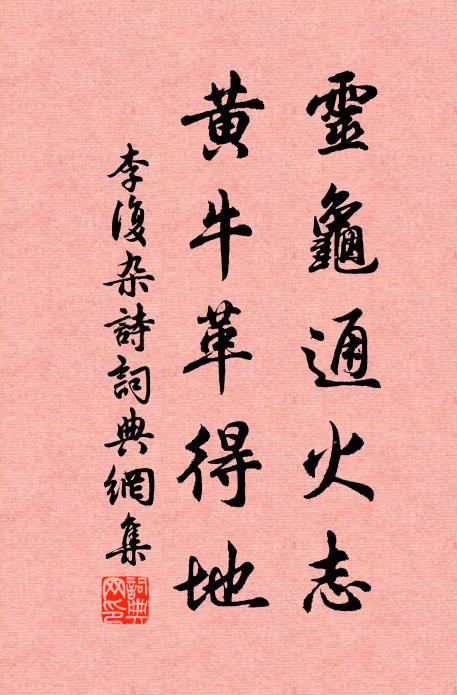 靈龜通火志
黃牛革得地
李復杂詩詞典網集
詞典網印